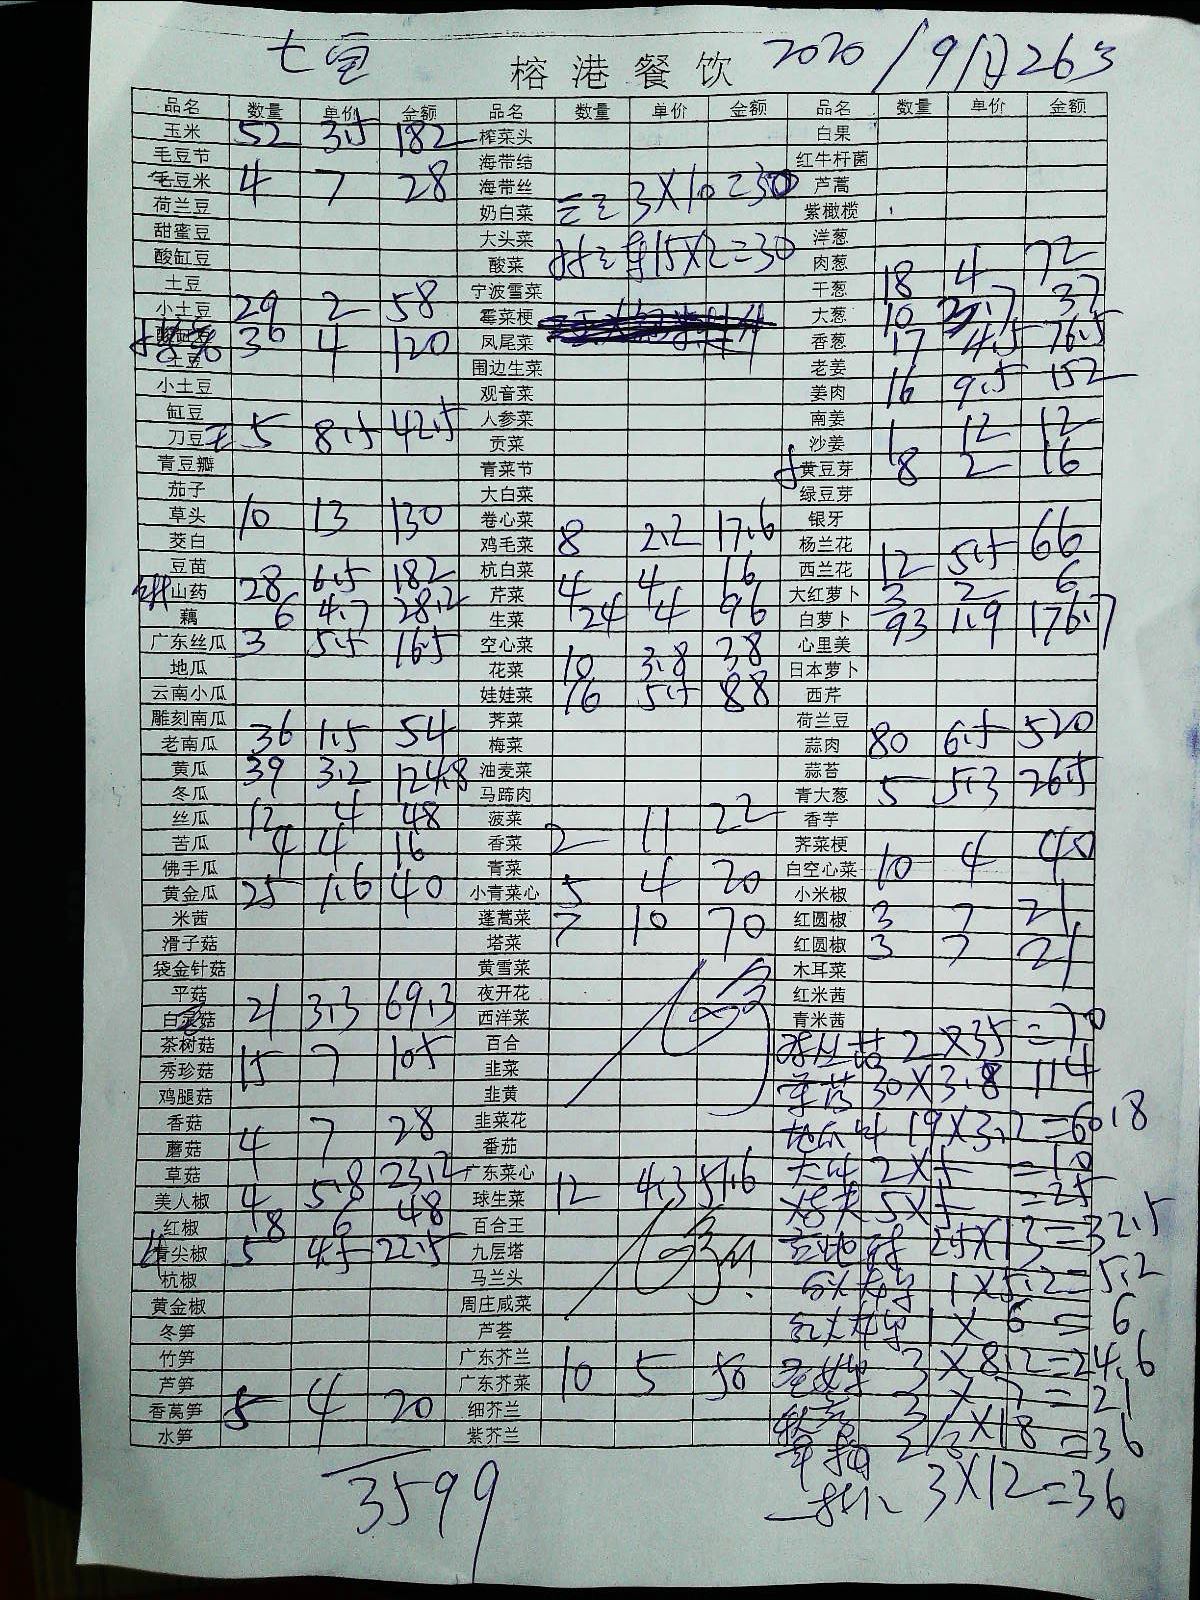 榕港餐饮 2020/9月26
品名 数量 单价 金额 品名 数量 单价 金额 品名 数量 单价 金额
玉米 52 3.5 182 榨菜头 白果
毛豆节 海带结 红牛杆菌
毛豆米 4 7 28 海带丝 3X10=30 芦蒿
荷兰豆 奶白菜 紫橄榄
甜蜜豆 大头菜 洋葱
酸缸豆 酸菜 15X2=30 肉葱 18 4 72
土豆 宁波雪菜 干葱
小土豆 29 2 58 霉菜梗 大葱 10 3.7 37
30 4 120 凤尾菜 香葱 17 4.5 76.5
土豆 围边生菜 老姜
小土豆 观音菜 姜肉 16 9.5 152
缸豆 人参菜 南姜
刀豆 5 8.5 42.5 贡菜 沙姜 1 12 12
青豆瓣 青菜节 黄豆芽 8 2 16
茄子 大白菜 绿豆芽
草头 10 13 130 卷心菜 银牙
茭白 鸡毛菜 8 2.2 17.6 杨兰花 66
豆苗 杭白菜 西兰花 12 5.5
山药 28 6.5 182 芹菜 4 4 16 大红萝卜 3 2 6
藕 6 4.7 28.2 生菜 24 4 96 白萝卜 93 1.9 176.7
广东丝瓜 3 5.5 16.5 空心菜 心里美
地瓜 花菜 10 3.8 38 日本萝卜
云南小瓜 娃娃菜 16 5.5 88 西芹
雕刻南瓜 荠菜 荷兰豆
老南瓜 36 1.5 54 梅菜 蒜肉 80 6.5 520
黄瓜 39 3.2 124.8 油麦菜 蒜苔
冬瓜 马蹄肉 青大葱 5 5.3 26.5
丝瓜 12 4 48 菠菜 香芋
苦瓜 4 4 16 香菜 2 11 22 荠菜梗
佛手瓜 青菜 白空心菜 10 4 40
黄金瓜 25 1.6 40 小青菜心 5 4 20 小米椒
米茜 蓬蒿菜 7 10 70 红圆椒 3 7 21
滑子菇 塔菜 红圆椒 3 7 21
袋金针菇 黄雪菜 木耳菜
平菇 夜开花 红米茜
菇 21 3.3 69.3 西洋菜 青米茜
茶树菇 百合 2X35=70
秀珍菇 15 7 105 韭菜 30X3.8 114
鸡腿菇 韭黄
香菇 韭菜花 19X3.2=60.8
蘑菇 4 7 28 番茄
草菇 广东菜心 2X5=10
美人椒 4 5.8 23.2 球生菜 12 4.3 51.6 5X5=25
红椒 8 6 48 百合王
青尖椒 5 4.5 22.5 九层塔 2.5X13=32.5
杭椒 马兰头 1X5.2=5.2
黄金椒 周庄咸菜
冬笋 芦荟 1X6=6
竹笋 广东芥兰 3X8.2=24.6
芦笋 广东芥菜 10 5 50 3X7=21
香莴笋 5 4 20 细芥兰
水笋 紫芥兰 2X18=36
3599 3X12=36